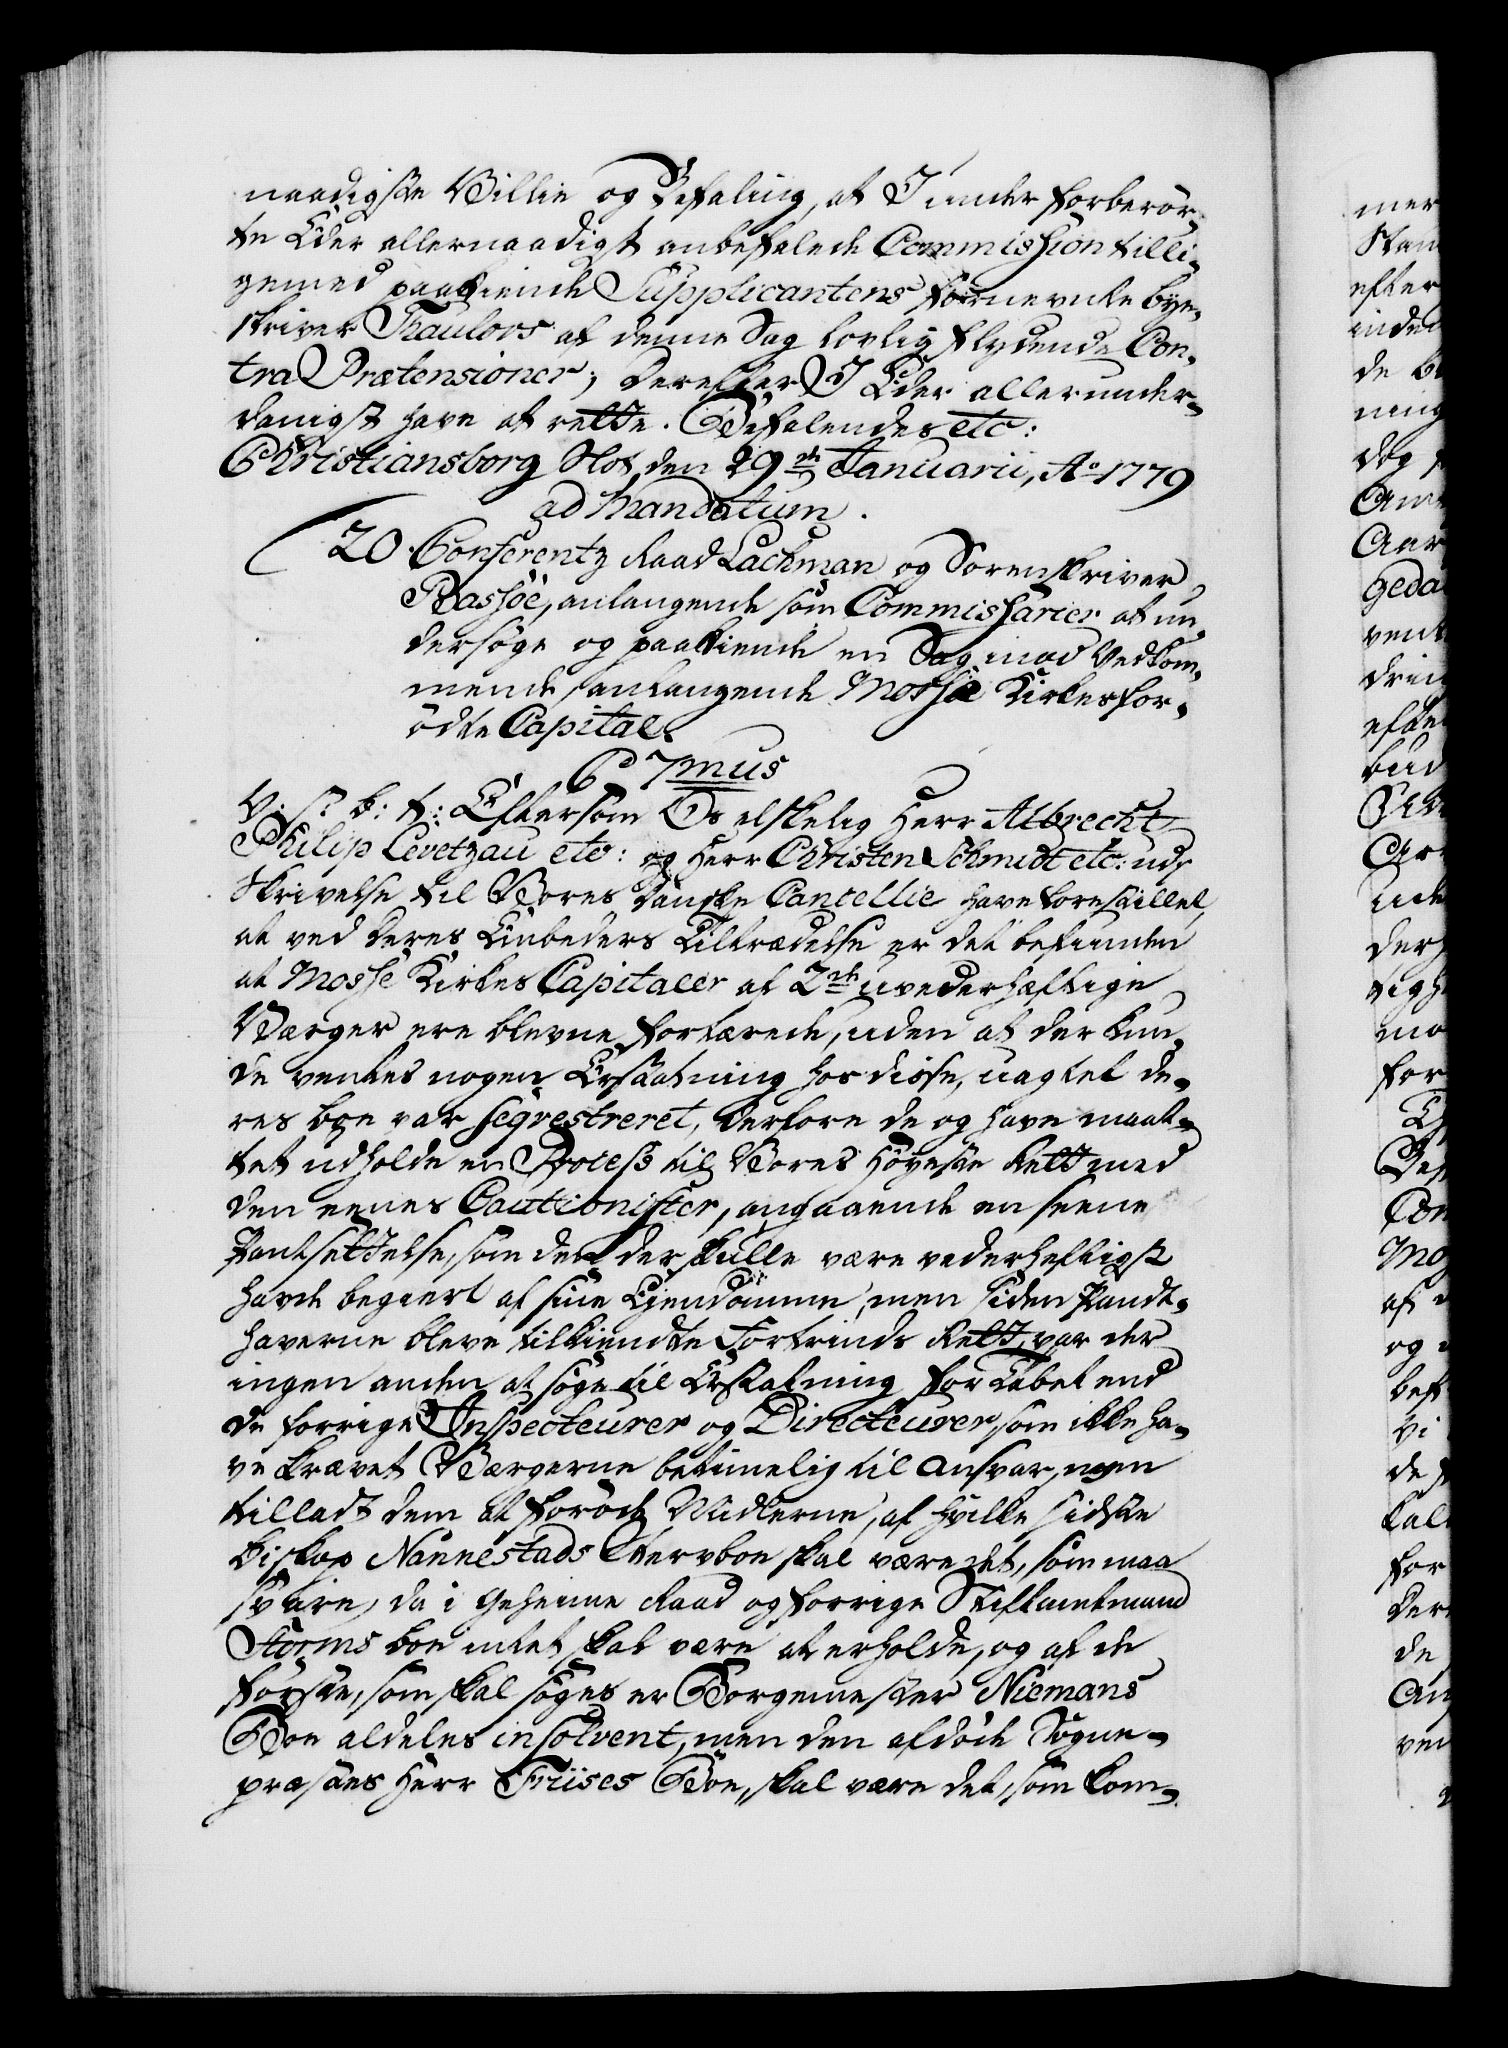 naadigste Villie og Befaling, at I under forberør,
te Eder allernaadigst anbefalede Commission tilli,
gemed paakiende Supplicantens fornevnte bye,
skriver Thaulovs af denne Sag lovlig flydende Con,
tra Prætensioner; derefter I Eder allerunder,
danigst have at rette. Befalendes etc:
Christiansborg Slot den 29de Januarii, Ao 1779
ad Mandatum.
20. Conferentz Raad Lachman og Sorenskriver
Rasføe, anlangende som Commissarier at un,
dersøge og paakiende en Sag mod Vedkom,
mende anlangende Mosse Kirkes for,
ødte Capital.
C 7mus
V: s: b: t: Eftersom Os elskelig Herr Albrecht
Philip Levetzau etc: og Herr Christen Schmidt etc: udj
Skrivelse til Vores Danske Cancellie have forestillet,
at ved deres Embeders Tiltrædelse er det befunden
at Mosse Kirkes Capitaler af 2de uvederhæftige
Værger ere blevne fortærede, uden at der kun,
de ventes nogen Erstatning hos disse, uagtet de,
res boe var seqvestreret, derfore de og have maat,
tet udholde en Process til Vores Høyeste Rett med
den eenes Cautionister, angaaende en seene
Pantsettelse, som den der skulle være vederheftigst
havde begiert af sine Ejendomme, men siden Pandt,
haverne bleve tilkiendte Fortrinds Rett, var der
ingen anden at søge til Erstatning for Tabet end
de forrige Inspecteurer og Directeurer, som ikke ha,
ve krævet Værgerne betimelig til Ansvar, men
tilladt dem at forøde Midlerne, af hvilke sidste
Biskop Nannestads Stervboe skal være det, som maa
svare, da i Geheime Raad og forrige Stiftamtmand
Storms boe intet skal være at erholde, og af de
første, som skal søges er Borgemester Niemans
Boe aldeles insolvent, men den afdøde Sogne,
præstes Herr Friises Boe, skal være det, som kom,